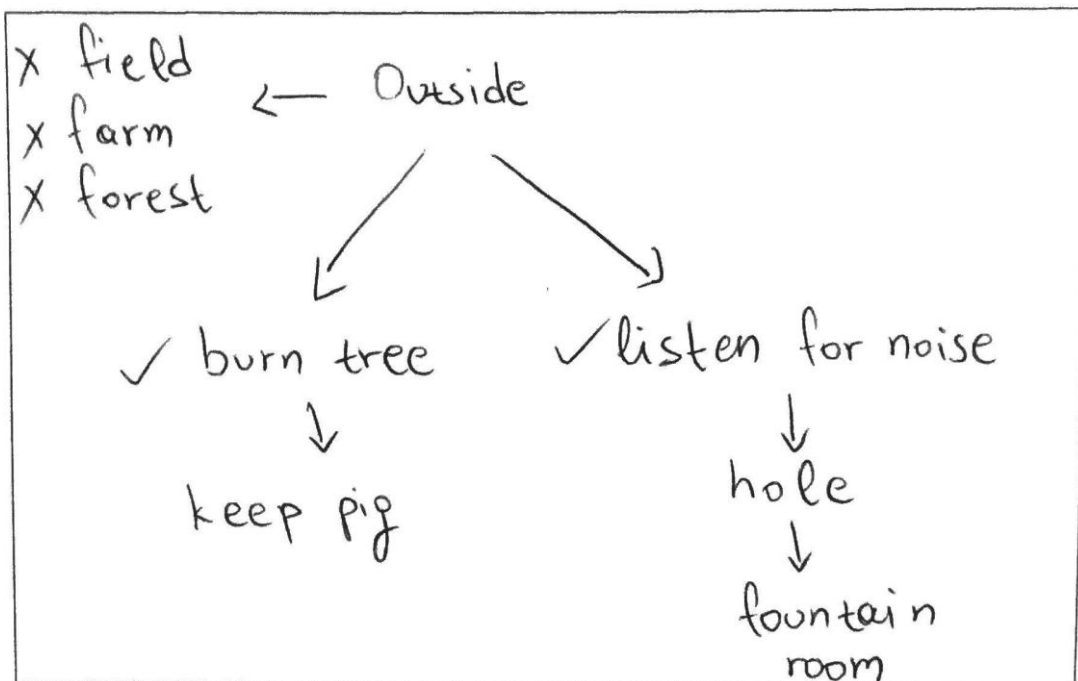 x field
x farm
x forest
← Outside
✓ burn tree
↓
keep pig
✓ listen for noise
↓
hole
↓
fountain
room